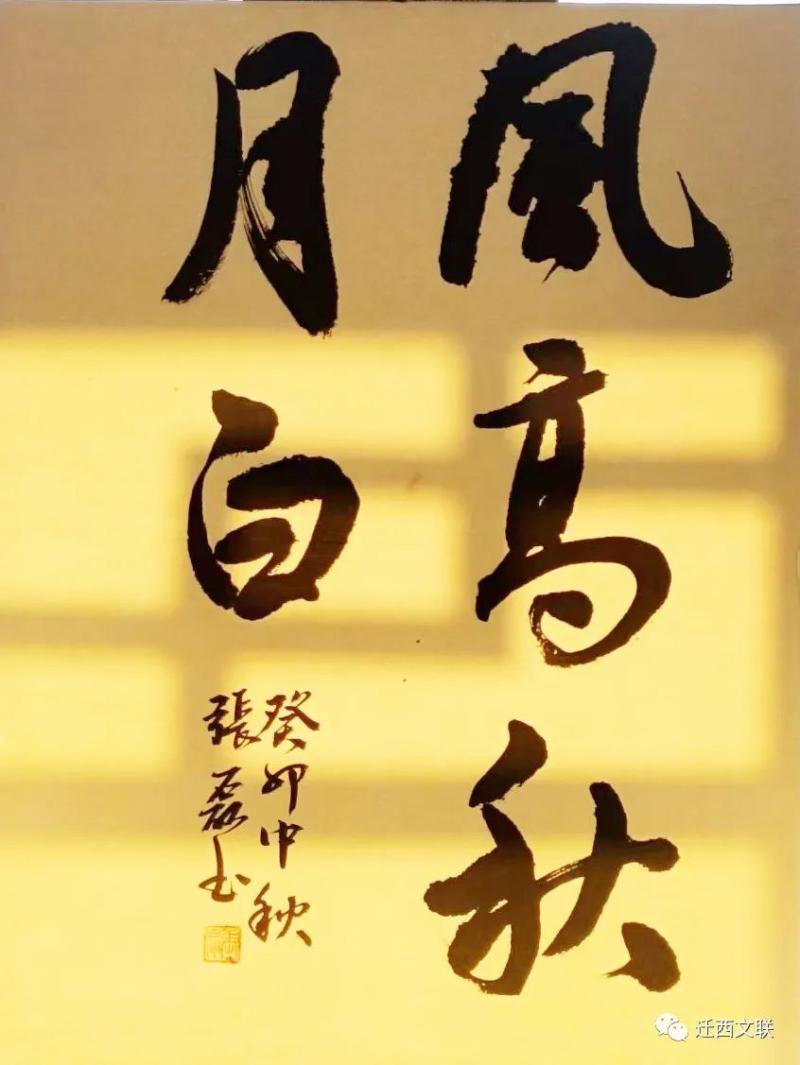 風高秋
月白
癸卯中秋
張磊书
迁西文联